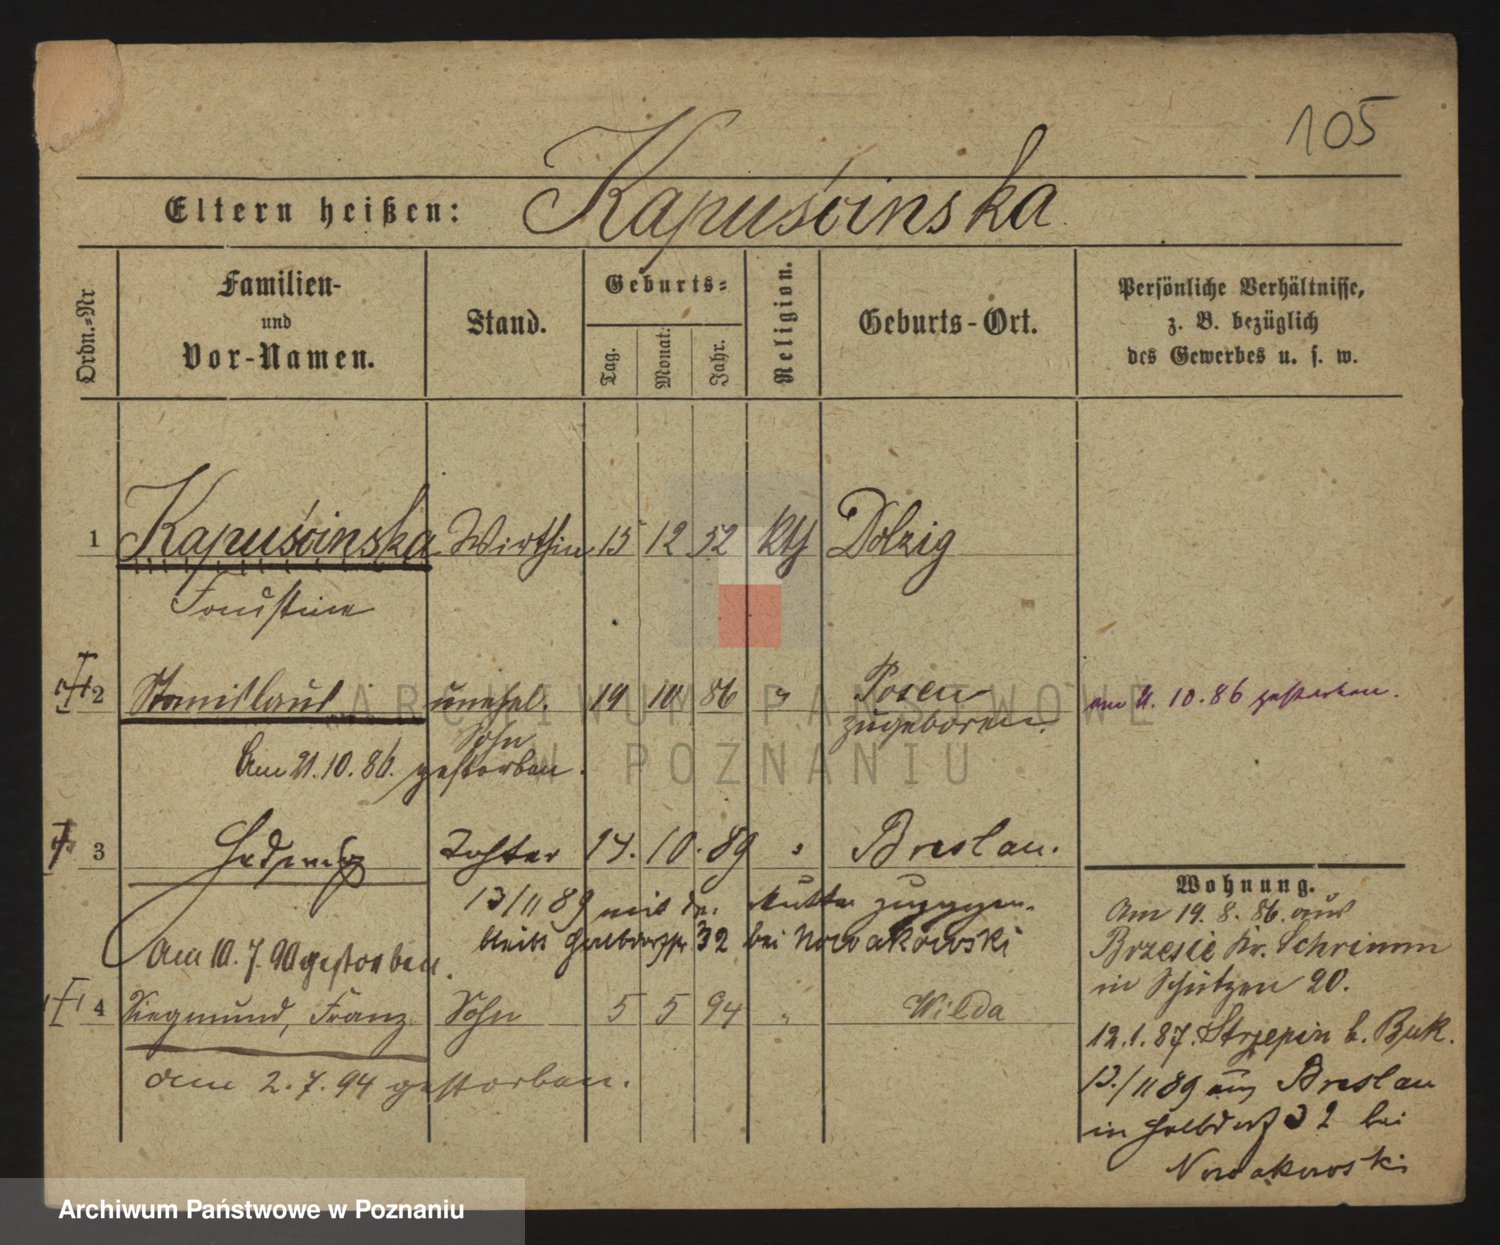 105
Eltern heißen: Kapuścinska
Ordn.-Nr
Familien-
und
Vor-Namen.
Stand.
Geburts-
Tag.
Monat.
Jahr.
Religion.
Geburts-Ort.
Persönliche Verhältnisse,
z. B. bezüglich
des Gewerbes u. s. w.
1 Kapuścinska Wirthin 15 12 52 kth Dolzig
Faustine
2 Stanislaus unehel. 19 10 86 " Posen am 21.10.86 gestorben.
Sohn zugeboren.
Am 21.10.86. gestorben.
3 Hedwig Tochter 14. 10. 89 " Breslau.
13/11 89 mit der Mutter zugezogen.
bleibt Halbdorfstr 32 bei Nowakowski
Am 10.7.90 gestorben.
4 Siegmund, Franz Sohn 5 5 94 " Wilda
am 2.7.94 gestorben.
Wohnung.
Am 19.8.86. aus
Brzesie Kr. Schrimm
in Schützen 20.
12.1.87. Strzepin b. Buk.
13./11 89 aus Breslau
in Halbdorf 32 bei
Nowakowski
ARCHIWUM PAŃSTWOWE
W POZNANIU
Archiwum Państwowe w Poznaniu